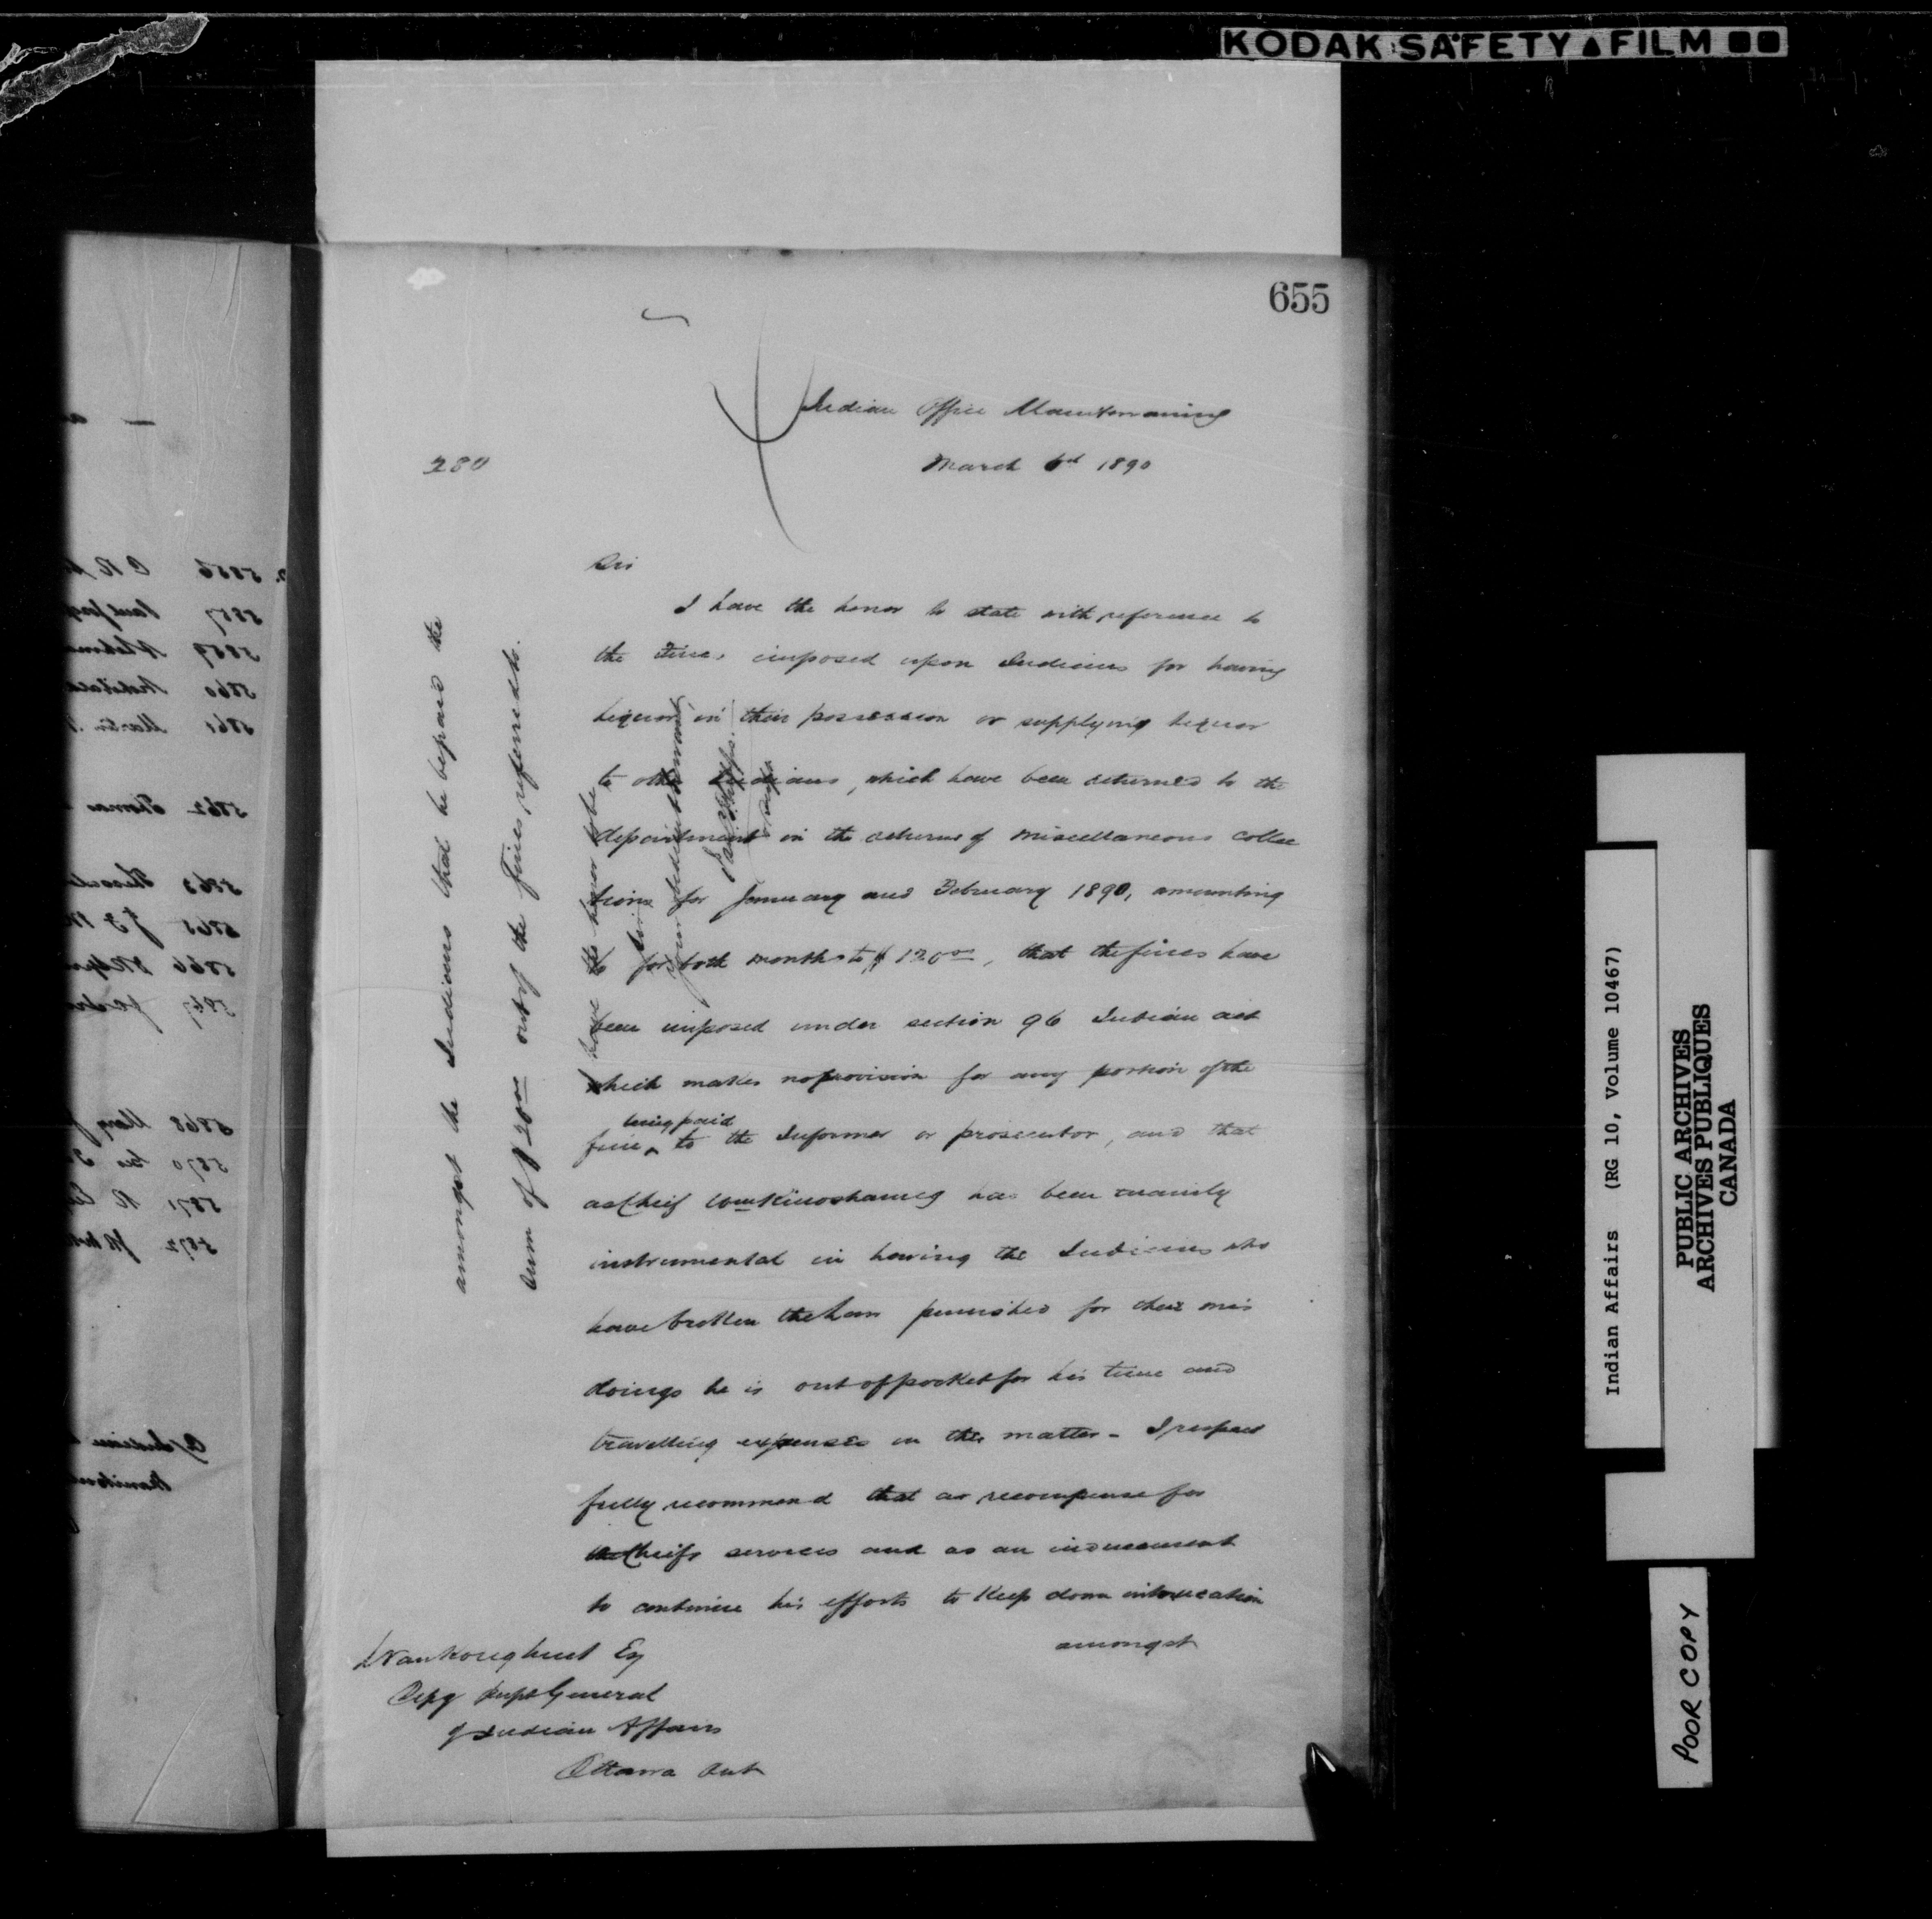 KODAK SAFETY FILM
655
Indian Office Manitowaning
280
March 6th 1890
Sir
I have the honor to state with reference to
the Fines imposed upon Indians for having
liquor in their possession or supplying liquor
to other Indians, which have been returned to the
department in the returns of miscellaneous collec
tions for January and February 1890, amounting
for both months to $120 00, that the fines have
been imposed under section 96 Indian act
which makes no provision for any portion of the
fine being paid to the Informer or prosecutor, and that
as Cheif Wm Kinoshameg has been mainly
instrumental in having the Indians who
have broken the Law punished for their mis
doings he is out of pocket for his time and
travelling expenses in the matter - I respect
fully recommend that as recompense for
the Cheifs services and as an inducement
to continue his efforts to keep down intoxication
amongst
L VanKoughnet Esq
Depy Supt General
of Indian Affairs
Ottawa Ont
amongst the Indians that he be paid the
sum of $20 00 out of the Fines referred to.
I have the honor to be
Sir
your obedient servant
Jas. C. Phipps.
5856 C R
5857
5859
5860 Archibald
5861 Martin
5862 Thomas
5863
5865 J
5866
5867
5868 Mary
5870
5871 R
5872
Indian Affairs (RG 10, Volume 10467)
PUBLIC ARCHIVES
ARCHIVES PUBLIQUES
CANADA
POOR COPY